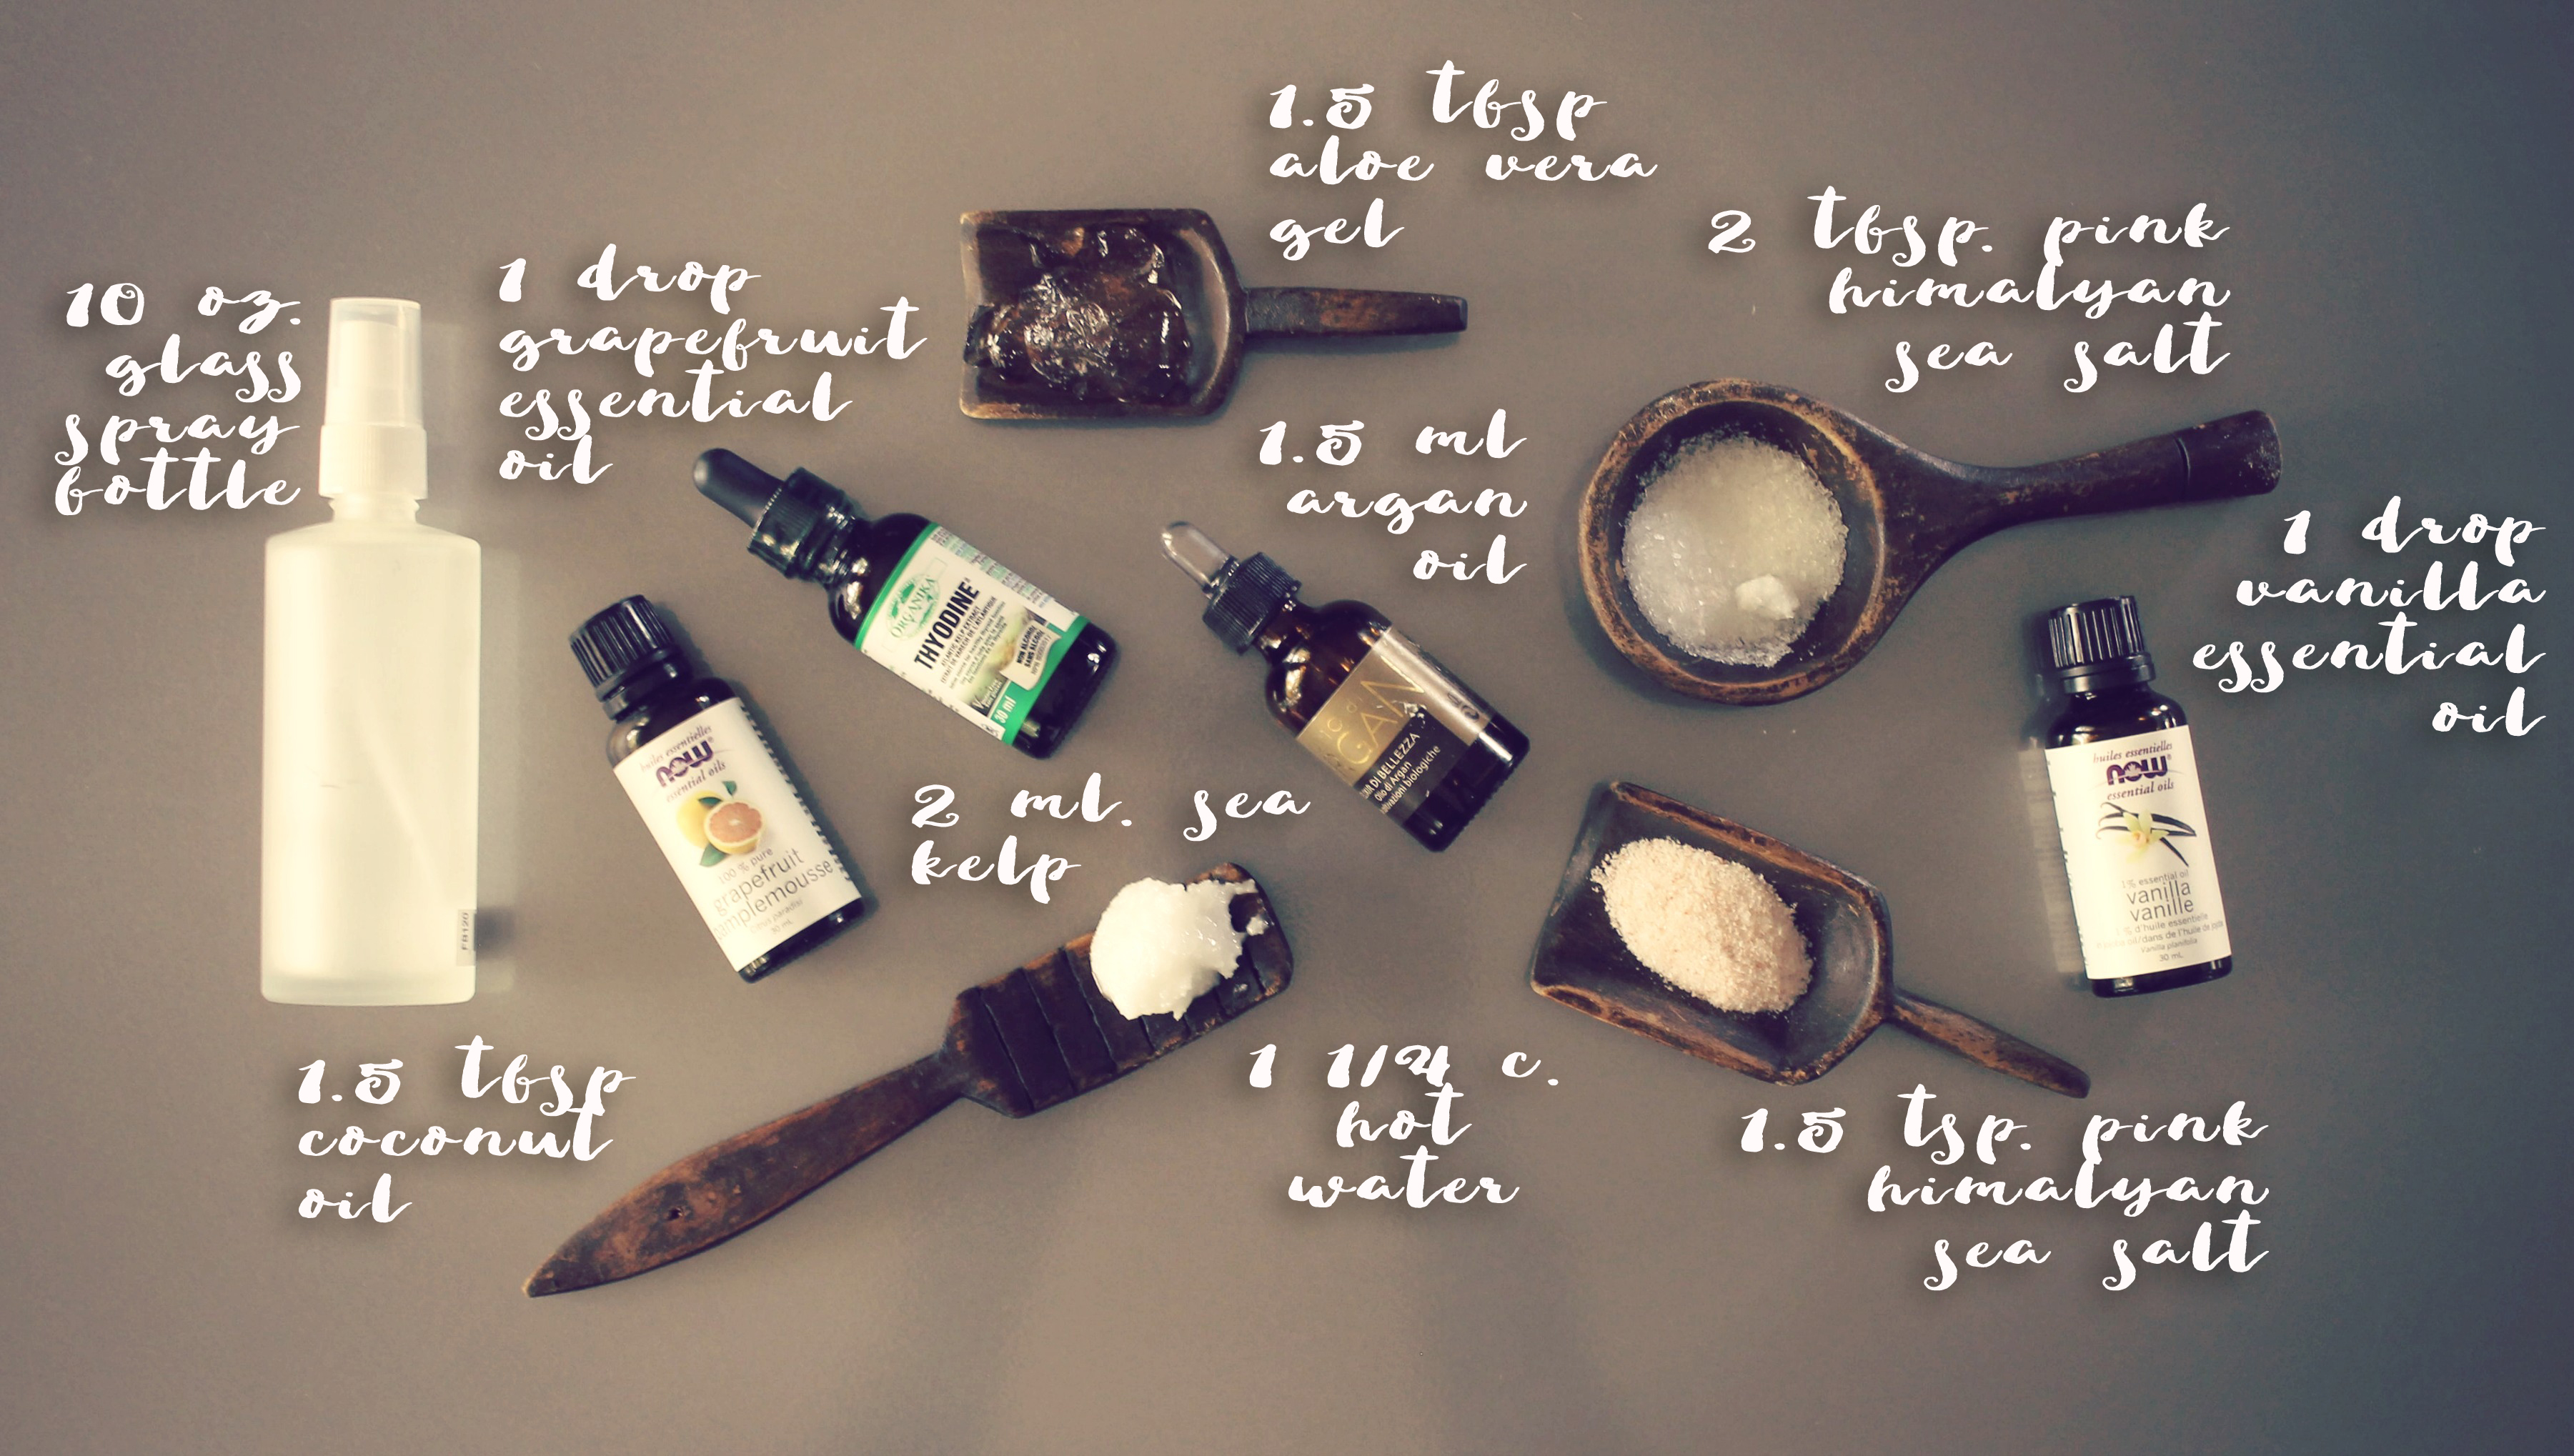 10 oz.
glass
spray
bottle
1 drop
grapefruit
essential
oil
1.5 tbsp
aloe vera
gel
2 tbsp. pink
himalyan
sea salt
1.5 ml
argan
oil
1 drop
vanilla
essential
oil
2 ml. sea
kelp
1.5 tbsp
coconut
oil
1 1/4 c.
hot
water
1.5 tsp. pink
himalyan
sea salt
ORGANIKA
THYODINE
ATLANTIC KELP EXTRACT
NON ALCOHOL
SANS ALCOOL
30 ml
huiles essentielles
now
essential oils
100% pure
grapefruit
pamplemousse
30 mL
DI BELLEZZA
Olio di Argan
biologiche
huiles essentielles
now
essential oils
1% essential oil
vanilla
vanille
d'huile essentielle
Vanilla planifolia
30 mL
FB120